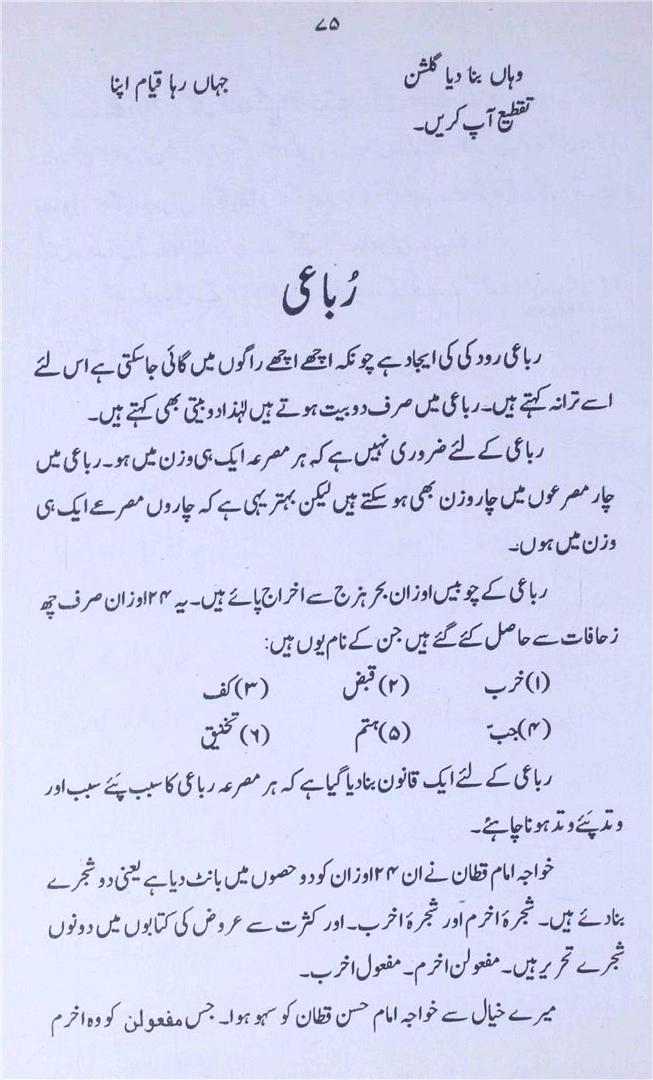 ۷۵
وہاں بنا دیا گلشن جہاں رہا قیام اپنا
تقطیع آپ کریں۔
رُباعی
رباعی رودکی کی ایجاد ہے چونکہ اچھے اچھے راگوں میں گائی جاسکتی ہے اس لئے
اسے ترانہ کہتے ہیں۔ رباعی میں صرف دو بیت ہوتے ہیں لہٰذا دوبیتی بھی کہتے ہیں۔
رباعی کے لئے ضروری نہیں ہے کہ ہر مصرعہ ایک ہی وزن میں ہو۔ رباعی میں
چار مصرعوں میں چار وزن بھی ہو سکتے ہیں لیکن بہتر یہی ہے کہ چاروں مصرعے ایک ہی
وزن میں ہوں۔
رباعی کے چوبیس اوزان بحر ہزج سے اخراج پائے ہیں۔ یہ ۲۴ اوزان صرف چھ
زحافات سے حاصل کئے گئے ہیں جن کے نام یوں ہیں:
(۱) خرب (۲) قبض (۳) کف
(۴) جبّ (۵) ہتم (۶) تخنیق
رباعی کے لئے ایک قانون بنا دیا گیا ہے کہ ہر مصرعہ رباعی کا سبب پَئے سبب اور
وتد پَئے وتد ہونا چاہئے۔
خواجہ امام قطان نے ان ۲۴ اوزان کو دو حصوں میں بانٹ دیا ہے یعنی دو شجرے
بنادئے ہیں۔ شجرۂ اخرم اور شجرۂ اخرب۔ اور کثرت سے عروض کی کتابوں میں دونوں
شجرے تحریر ہیں۔ مفعولن اخرم۔ مفعول اخرب۔
میرے خیال سے خواجہ امام حسن قطان کو سہو ہوا۔ جس مفعولن کو وہ اخرم